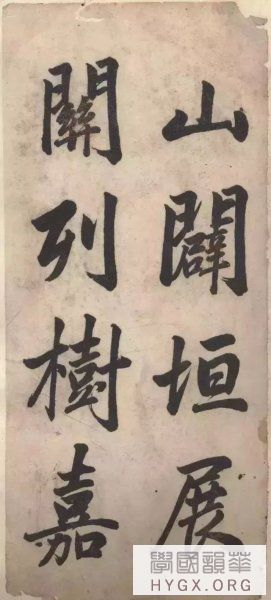 山闢垣展
關列樹嘉
華韻國學
HYGX.ORG